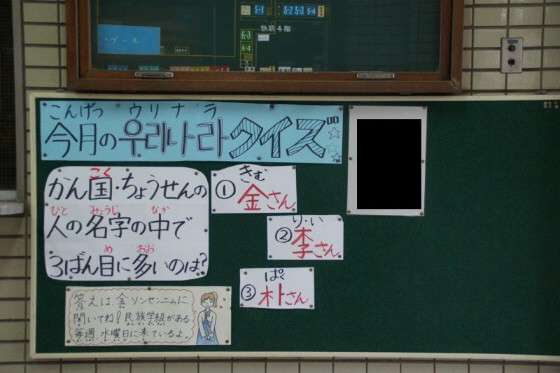 こんげつ ウリナラ
今月の우리나라クイズ
こく
かん国・ちょうせんの
ひと みょうじ なか
人の名字の中で
め おお
3ばん目に多いのは?
きむ
①金さん
り・い
②李さん
ぱく
③朴さん
答えは金ソンセンニムに
聞いてね!民族学級がある
毎週水曜日に来ているよ。